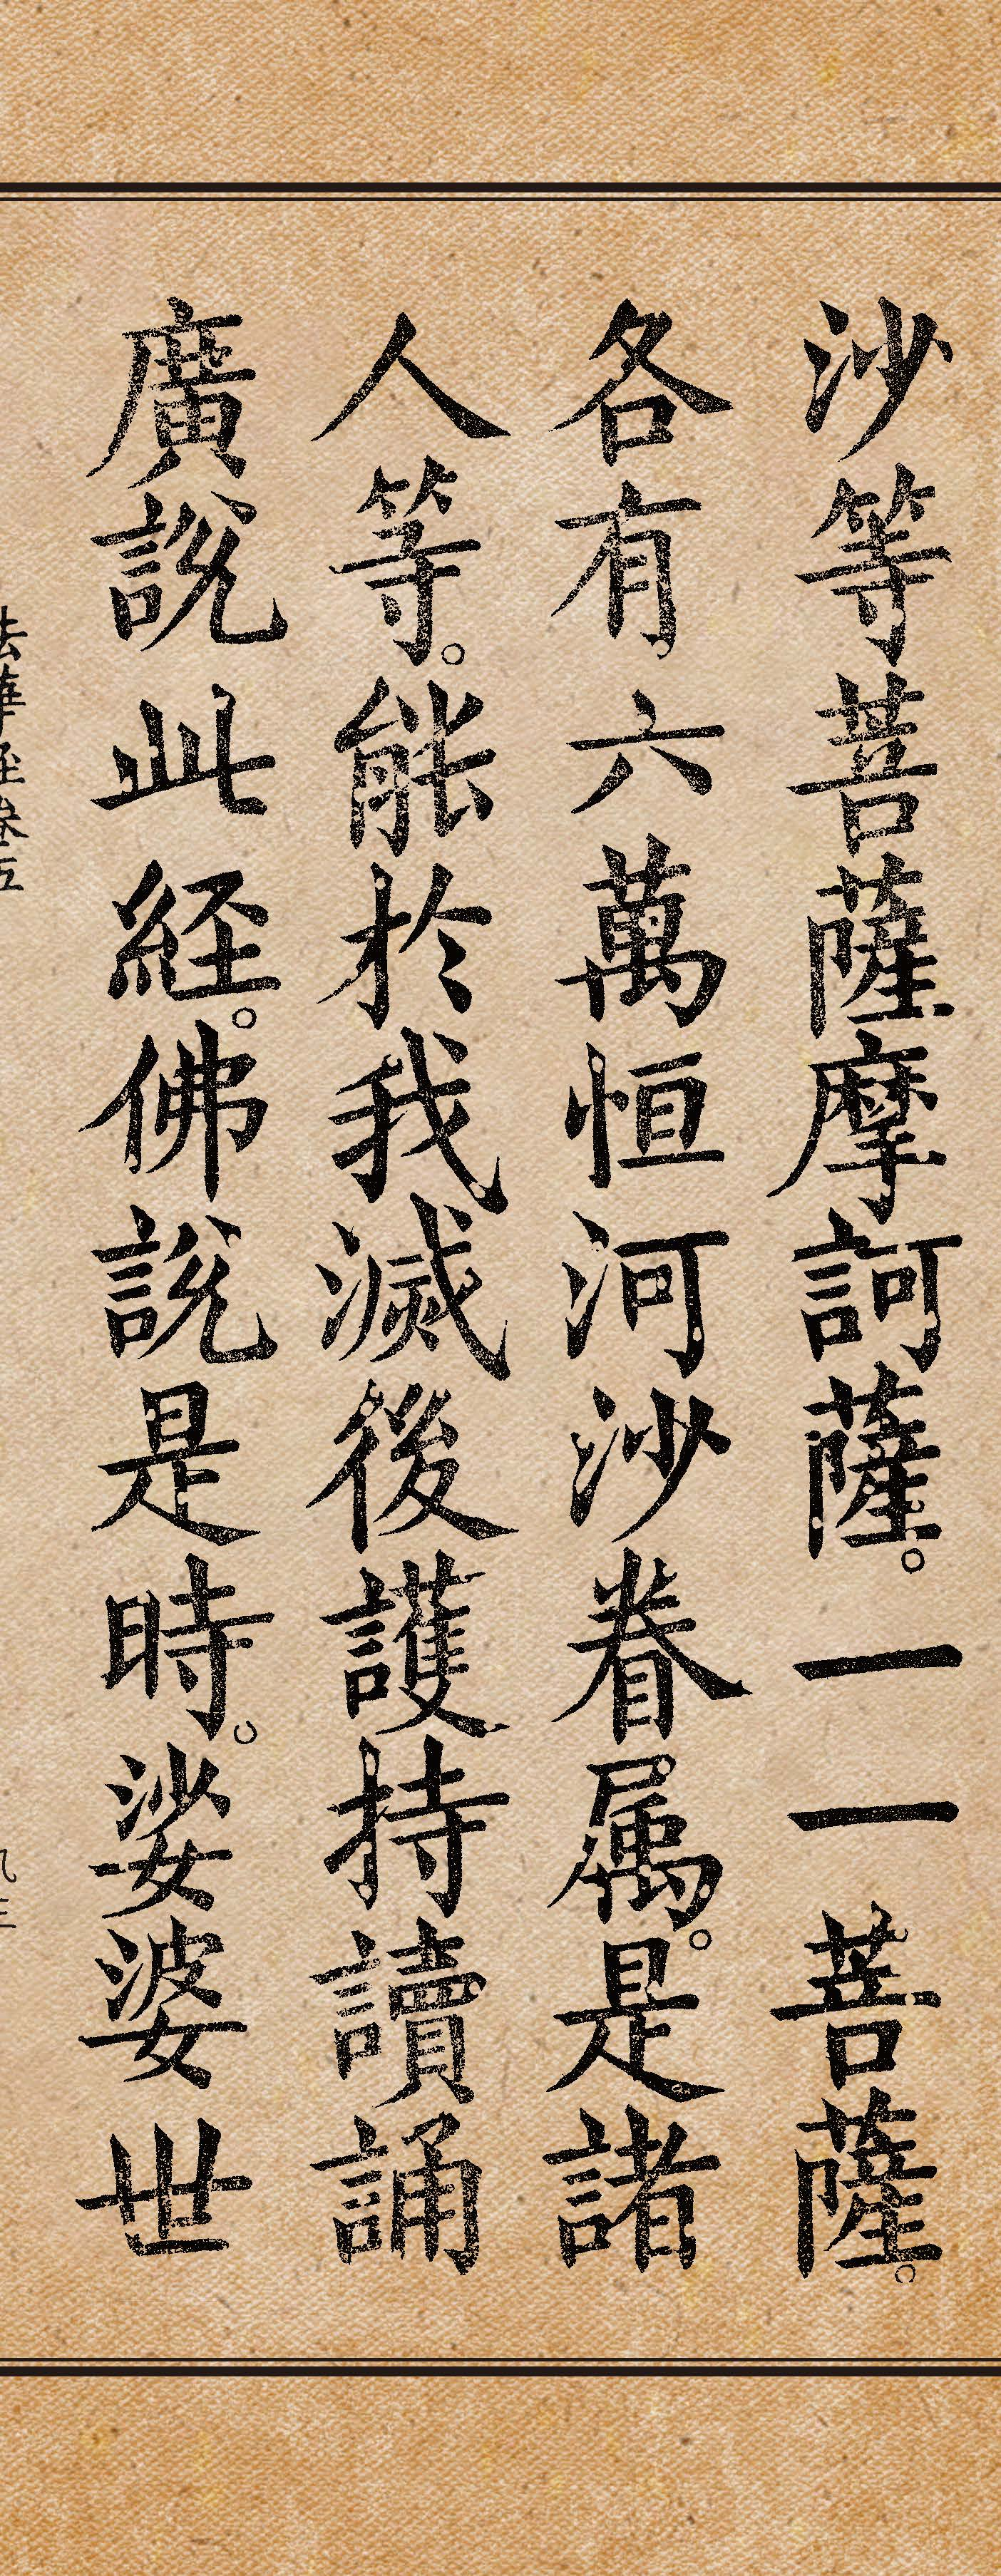 沙等菩薩摩訶薩。一一菩薩。
各有六萬恒河沙眷属。是諸
人等。能於我滅後護持讀誦
廣説此経。佛説是時。娑婆世
法華経巻五
九三